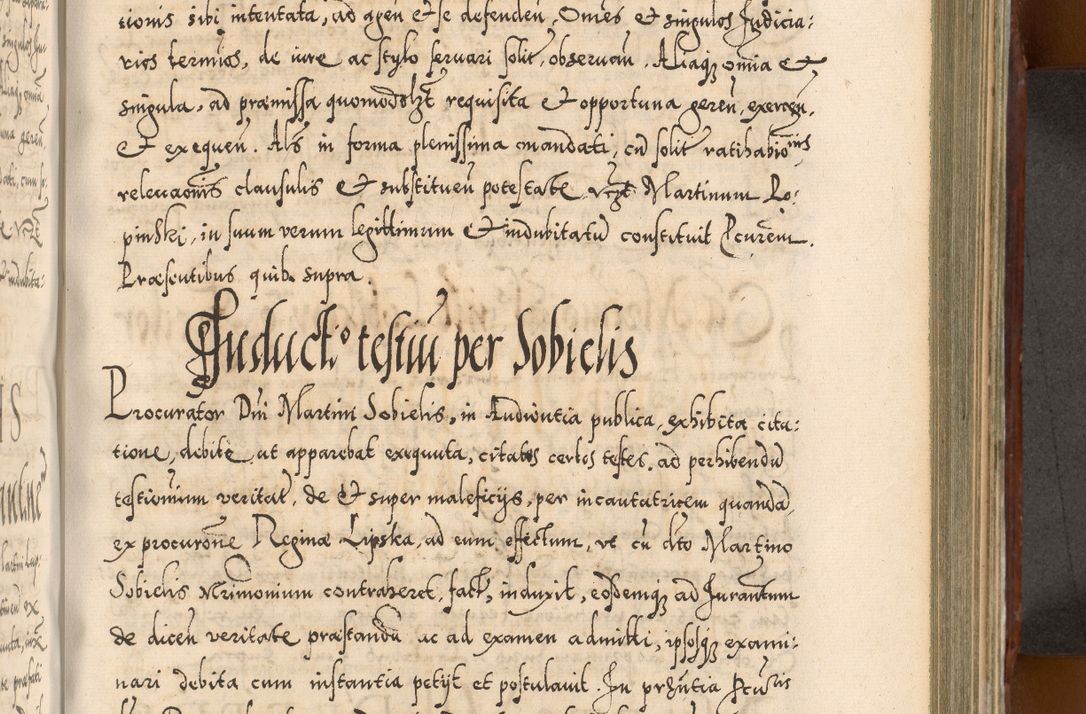 tionis sibi intentata, ad agen̄ et se defenden̄, Om̄es et singulos Judicia:
rios termīos, de iure ac stylo seruari solit̄, obseruan̄. Aliaq₃ om̄ia et
singula, ad præmissa quomodolꝫt requisita et opportuna geren̄, exercen̄,
et exequen̄. Als̄ in forma plenissima mandati, cū solit̄ ratihabiōnis
releuaōnis clausulis et substituen̄ potestate Martinum Lo:
pinski, in suum verum legittimum et indubitatū constituit Pcurem̄.
Præsentibus quibꝫ supra.
Inductio testiū per Sobielis
Procurator Dn̄i Martini Sobielis, in Audientia publica, exhibita cita:
tione, debite, ut apparebat exequuta, citatos certos testes, ad perhibendū
testionium veritat̄, de et super maleficijs, per incantatricem quandā,
ex procurōne Reginæ Lipska, ad eum effectum, vt cū dto Martino
Sobielis mr̄imonium contraheret, fact̄, induxit, eosdemq₃ ad Jurantum
de dicen̄ veritate præstandū ac ad examen admitti, ipsosq₃ exami:
nari debita cum instantia petijt et postulauit. In prn̄tia Pcuris